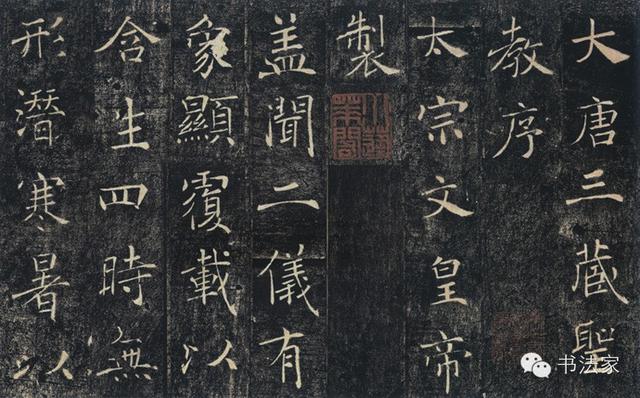 大唐三藏聖
教序
太宗文皇帝
製
蓋聞二儀有
象顯覆載以
含生四時無
形潛寒暑以
书法家